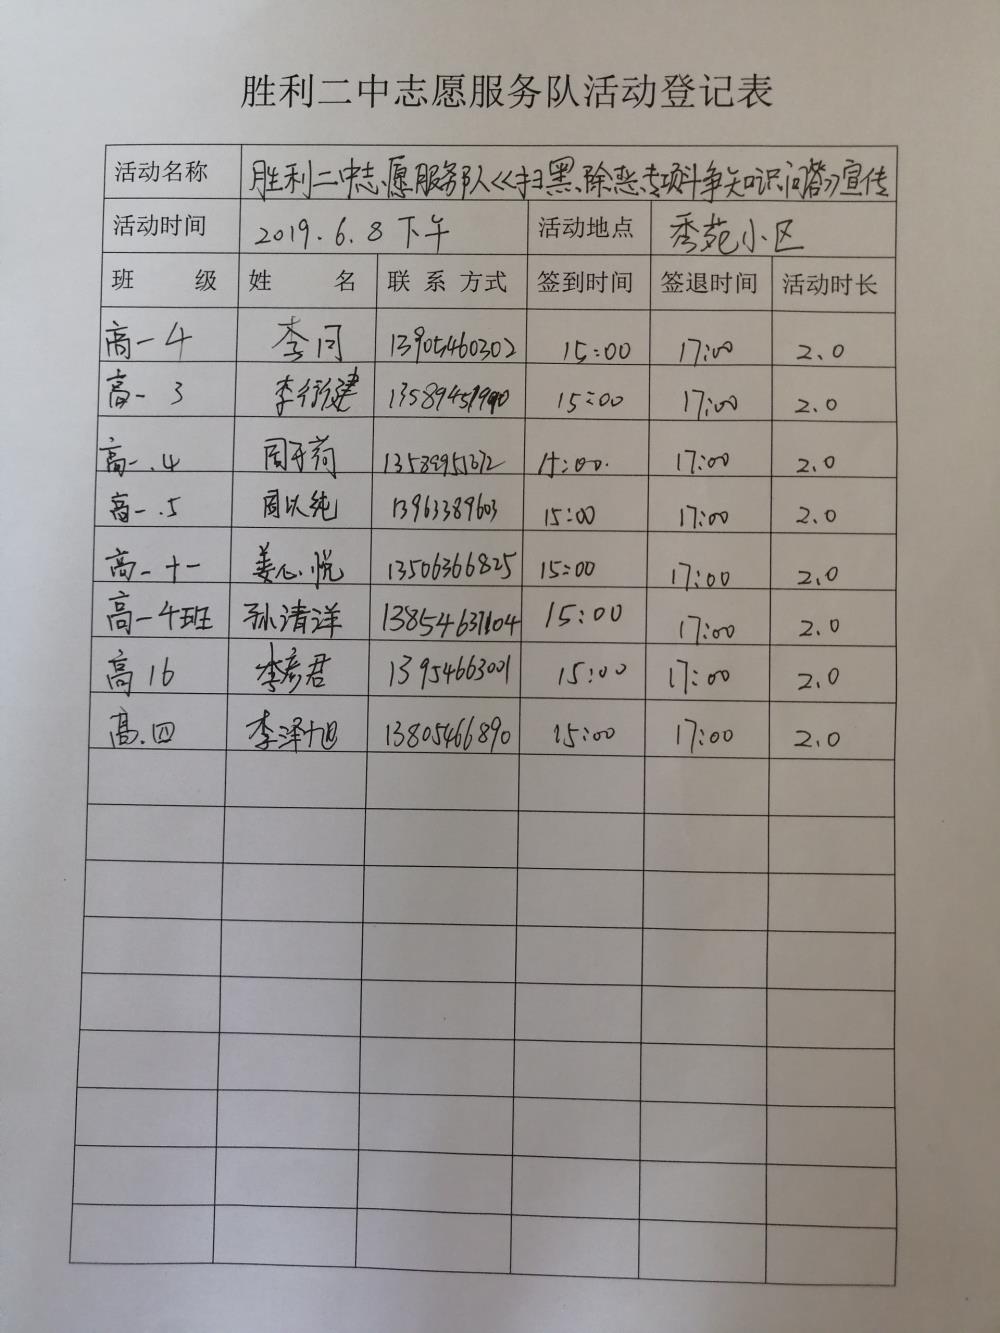 胜利二中志愿服务队活动登记表
活动名称 胜利二中志愿服务队<<扫黑除恶专项斗争知识问答>>宣传
活动时间 2019.6.8下午 活动地点 秀苑小区
班 级 姓 名 联系方式 签到时间 签退时间 活动时长
高一4 李问 13905460302 15:00 17:00 2.0
高一3 李衍建 15:00 17:00 2.0
高一.4 周子荷 15:00. 17:00 2.0
高一.5 周以纯 13963389603 15:00 17:00 2.0
高一十一 姜心悦 13506366825 15:00 17:00 2.0
高一4班 孙清洋 13854637104 15:00 17:00 2.0
高16 李彦君 13954663001 15:00 17:00 2.0
高.四 李泽旭 13805466890 15:00 17:00 2.0